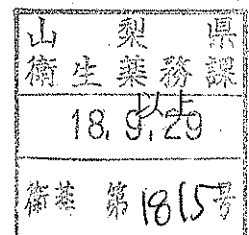 山梨県
衛生薬務課
以上
18.9.29
衛薬 第1815号